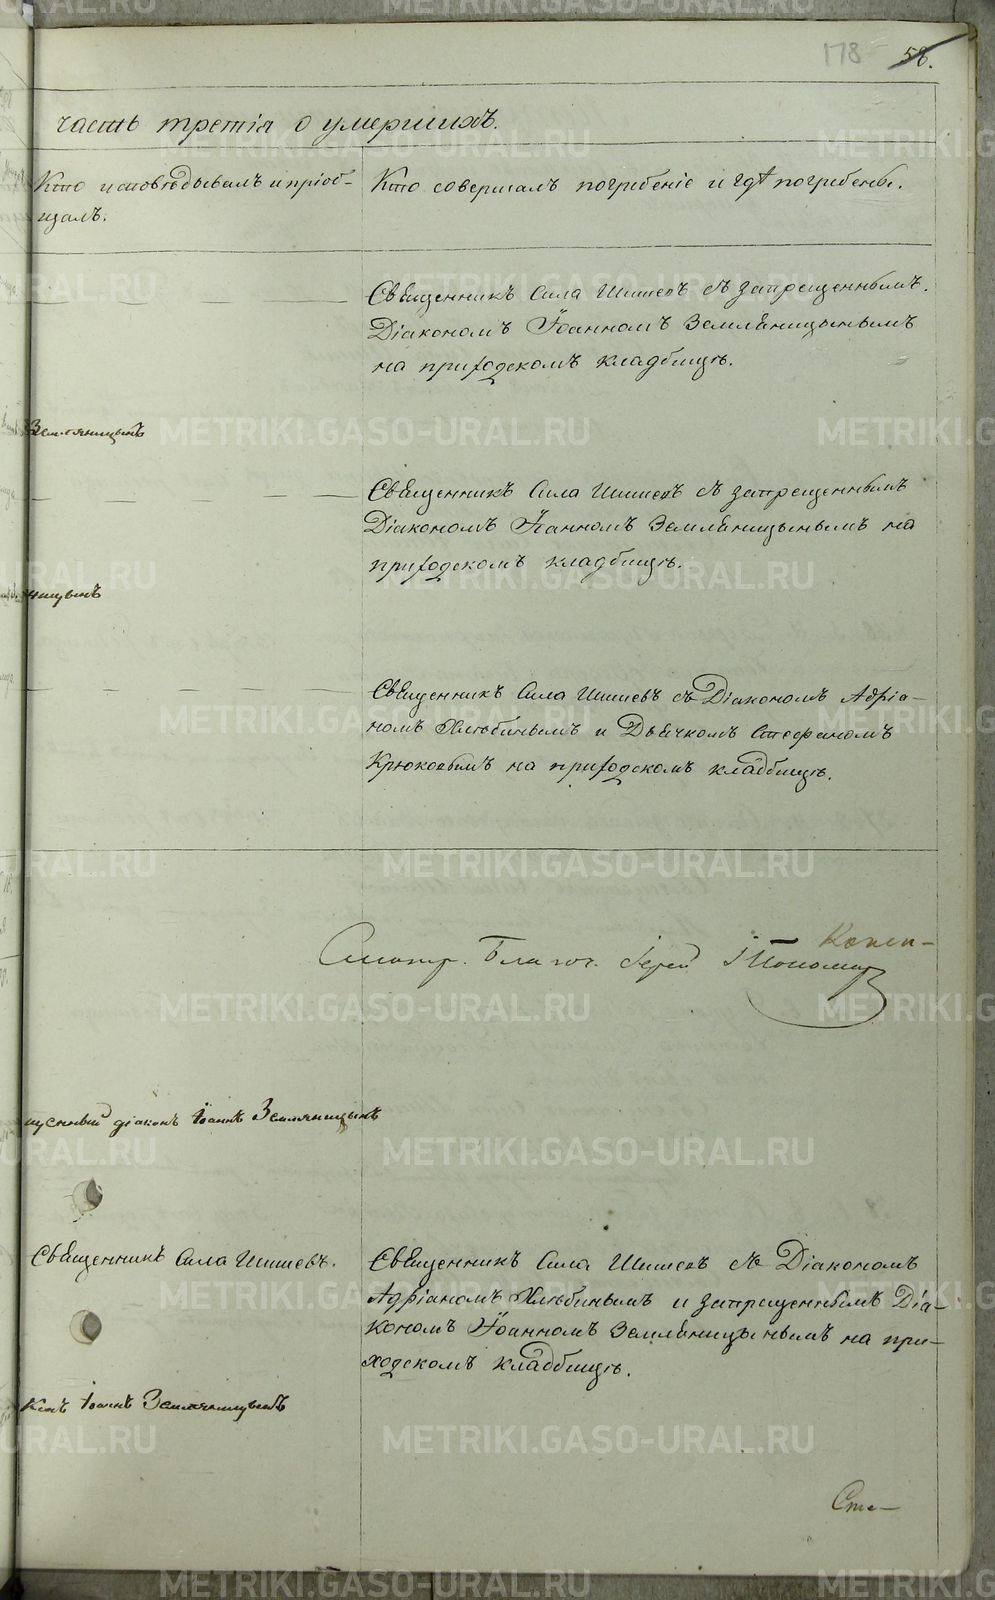 178 58.
часть третія о умершихъ.
Кто исповѣдывалъ и пріоб-
щалъ.
Кто совершалъ погребеніе и гдѣ погребены.
Священникъ Сила Шишевъ съ запрещеннымъ
Діакономъ Іоанномъ Земляницынымъ
на приходскомъ кладбищѣ.
Земляницынъ
Священникъ Сила Шишевъ съ запрещеннымъ
Діакономъ Іоанномъ Земляницынымъ на
приходскомъ кладбищѣ.
ницынъ
Священникъ Сила Шишевъ съ Діакономъ Адріа-
номъ Хлѣбинымъ и Дьячкомъ Стефаномъ
Крюковымъ на приходскомъ кладбищѣ.
Смотр. Благоч. Іерей І Пономар
щенный діаконъ Іоаннъ Земляницынъ
Священникъ Сила Шишевъ.
Священникъ Сила Шишевъ съ Діакономъ
Адріаномъ Хлѣбинымъ и запрещеннымъ Діа-
кономъ Іоанномъ Земляницынымъ на при-
ходскомъ кладбищѣ.
конъ Іоаннъ Земляницынъ
Сте-
METRIKI.GASO-URAL.RU